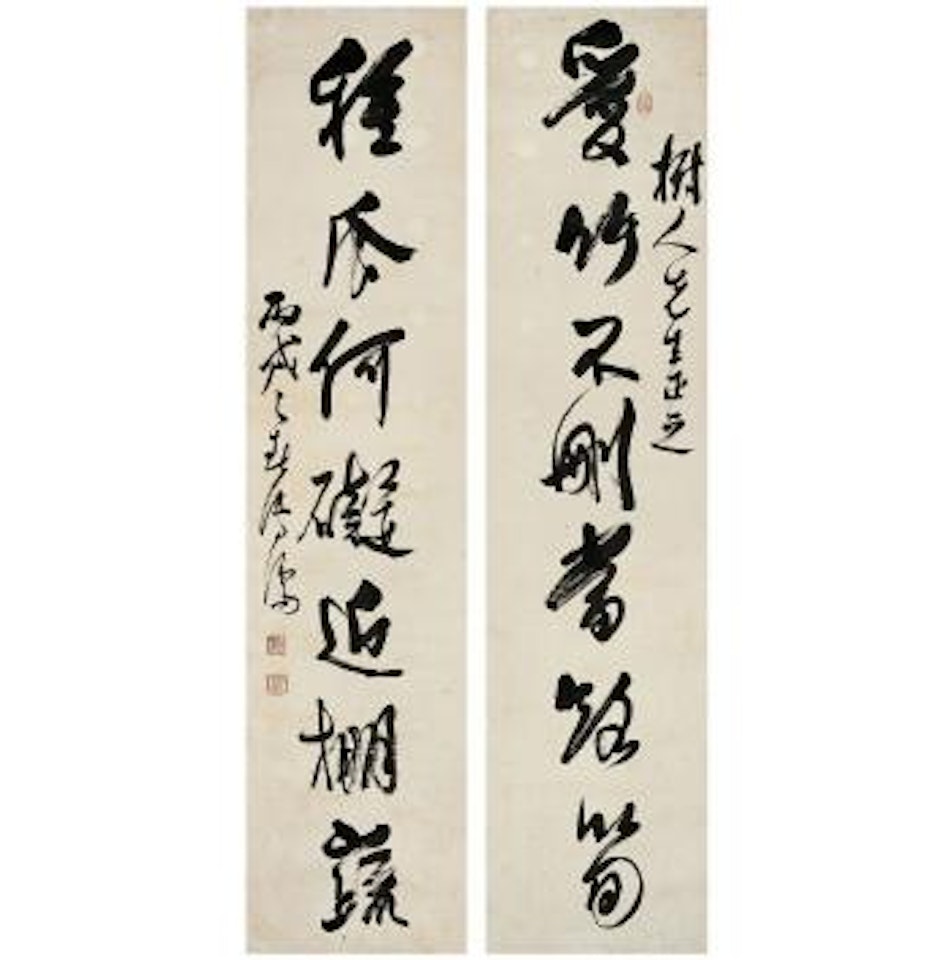 樹人先生正之
愛竹不刪當路筍
種瓜何礙近棚蔬
丙戌之春